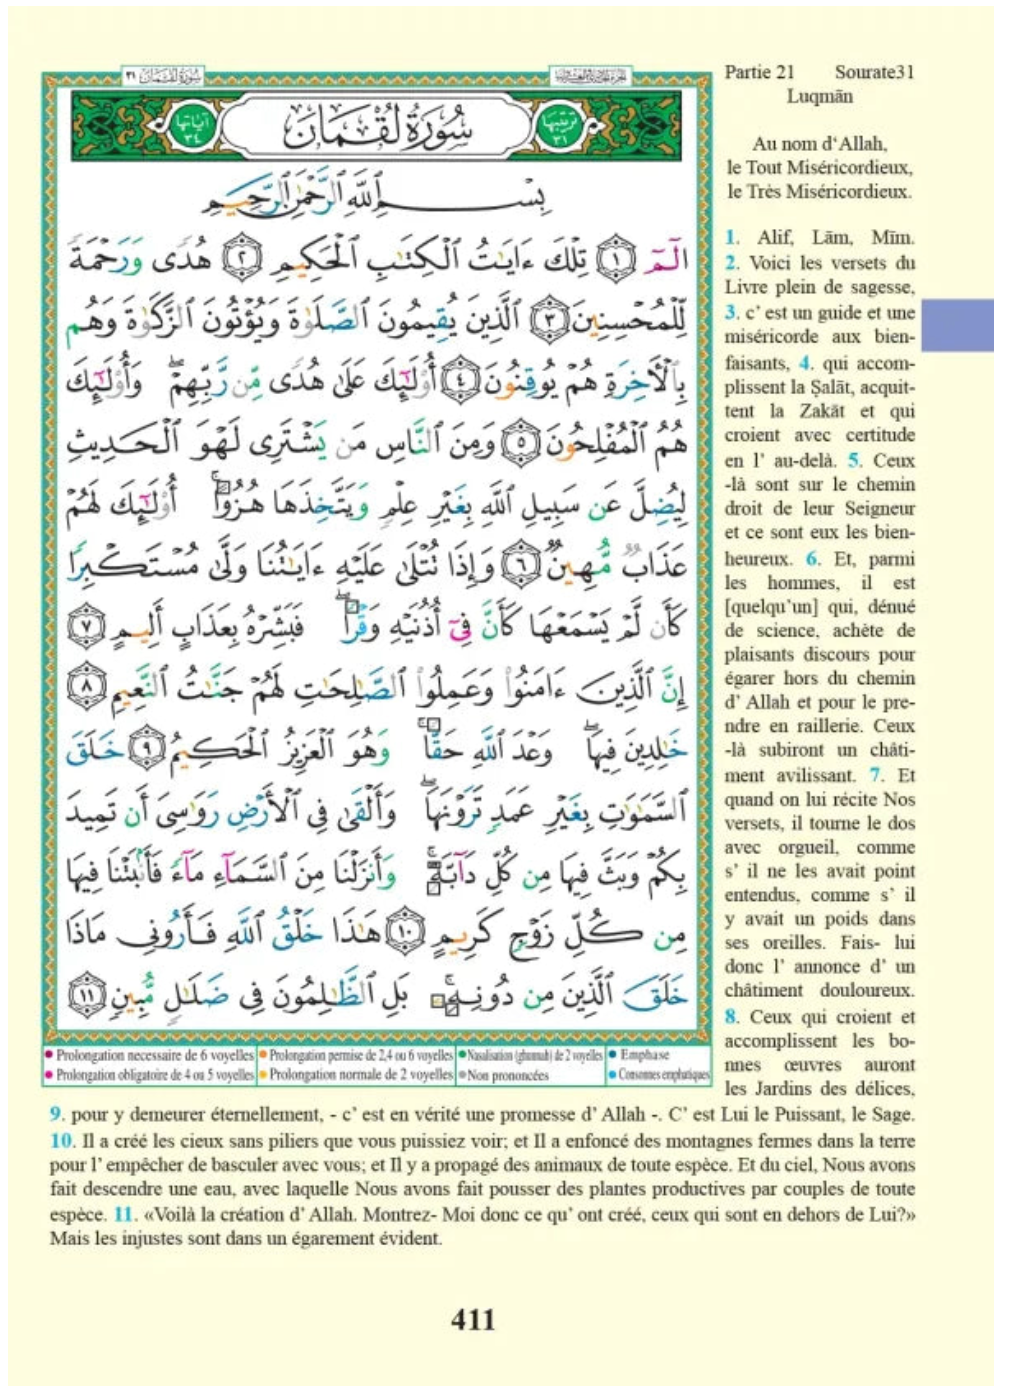 سُورَةُ لُقْمَان ٣١
الجزء الحادي والعشرون
آياتها ٣٤
سُورَةُ لُقْمَانَ
ترتيبها ٣١
بِسْمِ ٱللَّهِ ٱلرَّحْمَٰنِ ٱلرَّحِيمِ
الٓمٓ ۝١ تِلْكَ ءَايَٰتُ ٱلْكِتَٰبِ ٱلْحَكِيمِ ۝٢ هُدًى وَرَحْمَةً
لِّلْمُحْسِنِينَ ۝٣ ٱلَّذِينَ يُقِيمُونَ ٱلصَّلَوٰةَ وَيُؤْتُونَ ٱلزَّكَوٰةَ وَهُم
بِٱلْأَخِرَةِ هُمْ يُوقِنُونَ ۝٤ أُو۟لَٰٓئِكَ عَلَىٰ هُدًى مِّن رَّبِّهِمْ ۖ وَأُو۟لَٰٓئِكَ
هُمُ ٱلْمُفْلِحُونَ ۝٥ وَمِنَ ٱلنَّاسِ مَن يَشْتَرِى لَهْوَ ٱلْحَدِيثِ
لِيُضِلَّ عَن سَبِيلِ ٱللَّهِ بِغَيْرِ عِلْمٍ وَيَتَّخِذَهَا هُزُوًا ۚ أُو۟لَٰٓئِكَ لَهُمْ
عَذَابٌ مُّهِينٌ ۝٦ وَإِذَا تُتْلَىٰ عَلَيْهِ ءَايَٰتُنَا وَلَّىٰ مُسْتَكْبِرًا
كَأَن لَّمْ يَسْمَعْهَا كَأَنَّ فِىٓ أُذُنَيْهِ وَقْرًا ۖ فَبَشِّرْهُ بِعَذَابٍ أَلِيمٍ ۝٧
إِنَّ ٱلَّذِينَ ءَامَنُوا۟ وَعَمِلُوا۟ ٱلصَّٰلِحَٰتِ لَهُمْ جَنَّٰتُ ٱلنَّعِيمِ ۝٨
خَٰلِدِينَ فِيهَا ۖ وَعْدَ ٱللَّهِ حَقًّا ۚ وَهُوَ ٱلْعَزِيزُ ٱلْحَكِيمُ ۝٩ خَلَقَ
ٱلسَّمَٰوَٰتِ بِغَيْرِ عَمَدٍ تَرَوْنَهَا ۖ وَأَلْقَىٰ فِى ٱلْأَرْضِ رَوَٰسِىَ أَن تَمِيدَ
بِكُمْ وَبَثَّ فِيهَا مِن كُلِّ دَآبَّةٍ ۚ وَأَنزَلْنَا مِنَ ٱلسَّمَآءِ مَآءً فَأَنۢبَتْنَا فِيهَا
مِن كُلِّ زَوْجٍ كَرِيمٍ ۝١٠ هَٰذَا خَلْقُ ٱللَّهِ فَأَرُونِى مَاذَا
خَلَقَ ٱلَّذِينَ مِن دُونِهِۦ ۚ بَلِ ٱلظَّٰلِمُونَ فِى ضَلَٰلٍ مُّبِينٍ ۝١١
Prolongation necessaire de 6 voyelles
Prolongation permise de 2,4 ou 6 voyelles
Nasalisation (ghunnah) de 2 voyelles
Emphase
Prolongation obligatoire de 4 ou 5 voyelles
Prolongation normale de 2 voyelles
Non prononcées
Consonnes emphatiques
Partie 21 Sourate31
Luqmān
Au nom d‘Allah,
le Tout Miséricordieux,
le Très Miséricordieux.
1. Alif, Lām, Mīm.
2. Voici les versets du
Livre plein de sagesse,
3. c’ est un guide et une
miséricorde aux bien-
faisants, 4. qui accom-
plissent la Ṣalāt, acquit-
tent la Zakāt et qui
croient avec certitude
en l’ au-delà. 5. Ceux
-là sont sur le chemin
droit de leur Seigneur
et ce sont eux les bien-
heureux. 6. Et, parmi
les hommes, il est
[quelqu’un] qui, dénué
de science, achète de
plaisants discours pour
égarer hors du chemin
d’ Allah et pour le pre-
ndre en raillerie. Ceux
-là subiront un châti-
ment avilissant. 7. Et
quand on lui récite Nos
versets, il tourne le dos
avec orgueil, comme
s’ il ne les avait point
entendus, comme s’ il
y avait un poids dans
ses oreilles. Fais- lui
donc l’ annonce d’ un
châtiment douloureux.
8. Ceux qui croient et
accomplissent les bo-
nnes œuvres auront
les Jardins des délices,
9. pour y demeurer éternellement, - c’ est en vérité une promesse d’ Allah -. C’ est Lui le Puissant, le Sage.
10. Il a créé les cieux sans piliers que vous puissiez voir; et Il a enfoncé des montagnes fermes dans la terre
pour l’ empêcher de basculer avec vous; et Il y a propagé des animaux de toute espèce. Et du ciel, Nous avons
fait descendre une eau, avec laquelle Nous avons fait pousser des plantes productives par couples de toute
espèce. 11. «Voilà la création d’ Allah. Montrez- Moi donc ce qu’ ont créé, ceux qui sont en dehors de Lui?»
Mais les injustes sont dans un égarement évident.
411